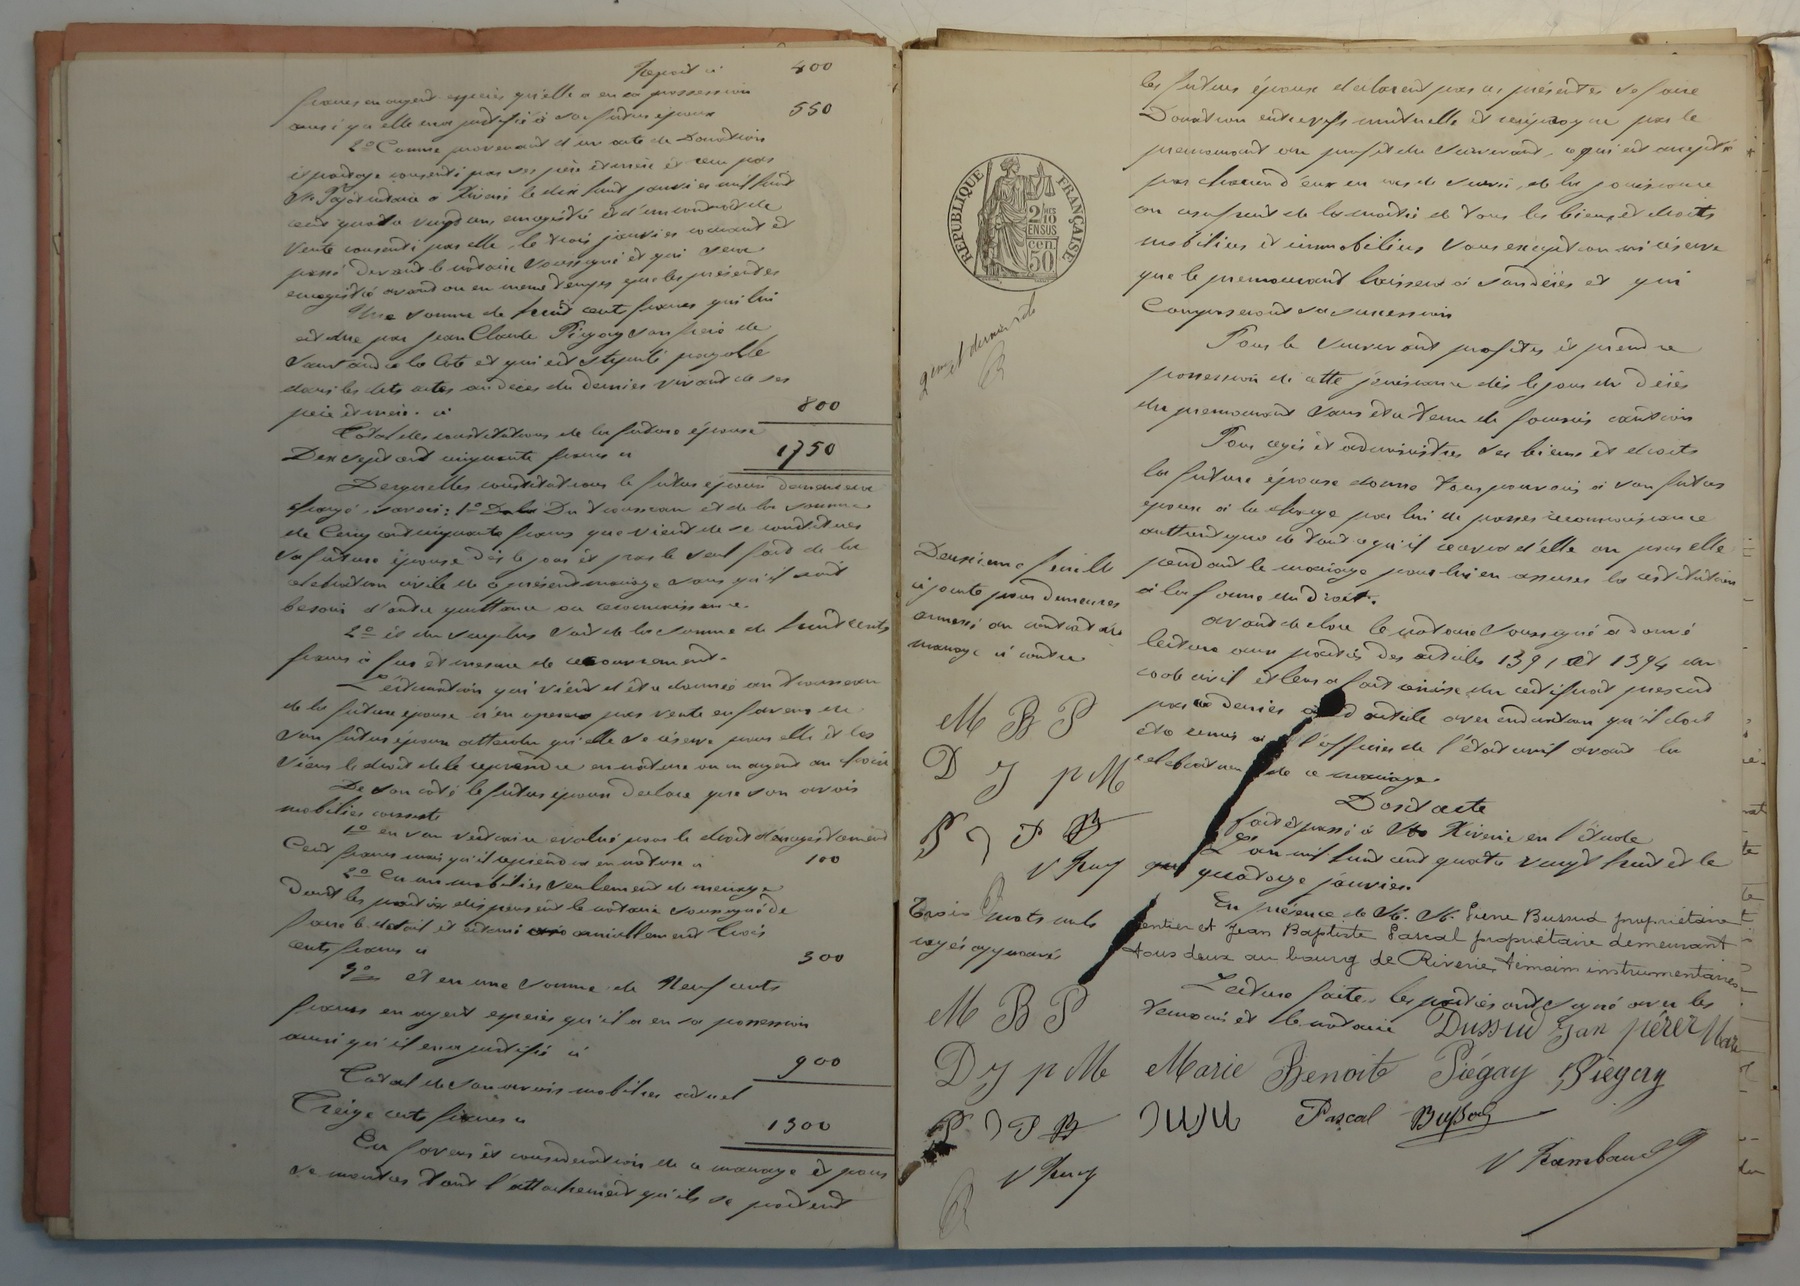 Report à 400
francs en argent espèces qu'elle a en sa possession
ainsi qu'elle en a justifié à son futur époux 550
2º Comme provenant d'un acte de Donation
et partage consenti par ses père et mère et reçu par
Mr notaire à Riverie le dix huit janvier mil huit
cent quatre vingt un enregistré et d'un contrat de
vente consenti par elle le trois janvier courant et
passé devant le notaire soussigné et qui sera
enregistré avant ou en même temps que les présentes
Une somme de huit cent francs qui lui
est due par Jean Claude Piégay son frère de
et qui est stipulé payable
dans les dits actes au décès du dernier vivant de ses
père et mère. ci 800
Total des constitutions de la future épouse
Dix sept cent cinquante francs ci 1750
Desquelles constitutions le futur époux demeurera
chargé, savoir: 1º Du trousseau et de la somme
de Cinq cent cinquante francs que vient de se constituer
sa future épouse dès le jour et par le seul fait de la
célébration civile de présent mariage sans qu'il soit
besoin d'autre quittance ou reconnaissance.
2º et du surplus soit de la somme de huit cents
francs à fur et mesure de recouvrement.
L'estimation qui vient d'être donnée au trousseau
de la future épouse n'en opérera pas vente en faveur de
son futur époux attendu qu'elle se réserve pour elle et les
siens le droit de le reprendre en nature ou en argent au choix
De son côté le futur époux déclare que son avoir
mobilier consiste
1º en son vestiaire évalué pour le droit d'enregistrement
Cent francs mais qu'il reprendra en nature ci 100
2º En un mobilier seulement de ménage
dont les parties dispensent le notaire soussigné de
faire le détail et estimé amiablement trois
cents francs ci 300
3º et en une somme de Neuf cents
francs en argent espèces qu'il a en sa possession
ainsi qu'il en a justifié ci 900
Total de son avoir mobilier actuel
Treize cents francs ci 1300
En faveur et considération de ce mariage et pour
se montrer tout l'attachement qu'ils se portent
RÉPUBLIQUE FRANÇAISE
2/10 EN SUS
50 cen
2eme et dernier rôle
R
Deuxième feuille
ajoutée pour demeurer
annexé au contrat de
mariage ci contre
M B P
D J p M
P J P B
V Ruy
Trois mots nuls
rayés approuvé
M B P
D J p M
P J P B
V Ruy
R
les futurs époux déclarent par ces présentes se faire
Donation entrevifs mutuelle et réciproque par le
prémourant au profit du survivant, ce qui est accepté
par chacun d'eux en cas de survie, de la jouissance
ou usufruit de la moitié de tous les biens et droits
mobiliers et immobiliers sans exception ni réserve
que le prémourant laissera à son décès et qui
Composeront sa succession
Pour le survivant profiter et prendre
possession de cette jouissance dès le jour du décès
du prémourant sans être tenu de fournir caution
Pour régir et administrer ses biens et droits
la future épouse donne tous pouvoirs à son futur
époux à la charge par lui de passer reconnaissance
authentique de tout ce qu'il recevra d'elle ou pour elle
pendant le mariage pour lui en assurer la restitution
à la forme du droit.
avant de clore le notaire soussigné a donné
lecture aux parties des articles 1391 et 1394 du
code civil et leur a fait remise du certificat prescrit
par ce dernier article avec indication qu'il doit
être remis à l'officier de l'état civil avant la
célébration de ce mariage.
Dont acte
fait et passé à Riverie en l'étude
L'an mil huit cent quatre vingt huit et le
quatorze janvier.
En présence de M. M. Pierre Bussod propriétaire
rentier et Jean Baptiste Pascal propriétaire demeurant
tous deux au bourg de Riverie, témoins instrumentaires
Lecture faite, les parties ont signé avec les
témoins et le notaire Dussud Jean
Marie Benoite Piégay Piégay
Pascal Bussod
V Rambaud